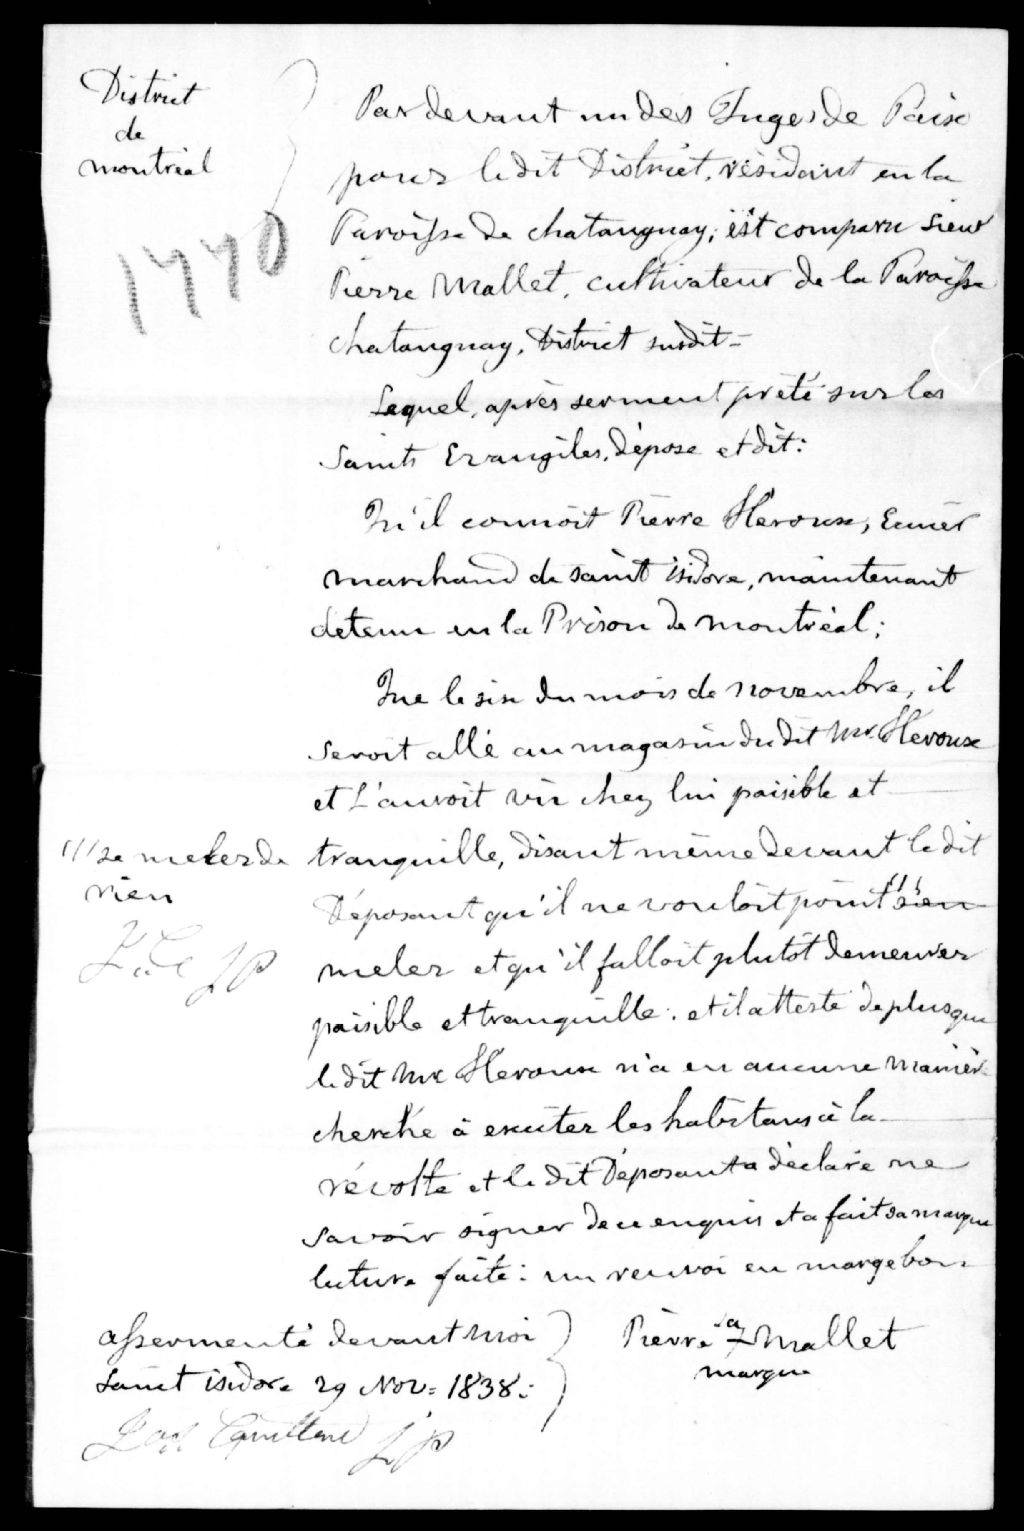 District
de
montréal
1770
Par devant un des Juges de Paix
pour le dit District, résidant en la
Paroisse de chatauguay; est comparu Sieur
Pierre Mallet, cultivateur de la Paroisse
chatauguay, District susdit =
Lequel, après serment prété sur les
Saints Evangiles, dépose et dit:
Qu'il connoit Pierre Héroux, Ecuier
marchand de saint isidore, maintenant
detenu en la Prison de montréal;
Que le six du mois de novembre, il
seroit allé au magasin du dit Mr. Héroux
et L'auroit vû chez lui paisible et
tranquille, disant même devant le dit
Déposant qu'il ne vouloit point /// s'en
meler et qu'il falloit plutôt demeurer
paisible et tranquille: et il atteste de plus que
le dit Mr Héroux n'a en aucune manière
cherché à exciter les habitans à la
révolte et le dit Déposant a déclaré ne
savoir signer de ce enquis et a fait sa marque
lecture faite: un renvoi en marge bon =
/// se meler de
rien
JP
assermenté devant moi
Saint isidore 29 Nov = 1838:
JP
Pierre sa Mallet
marque